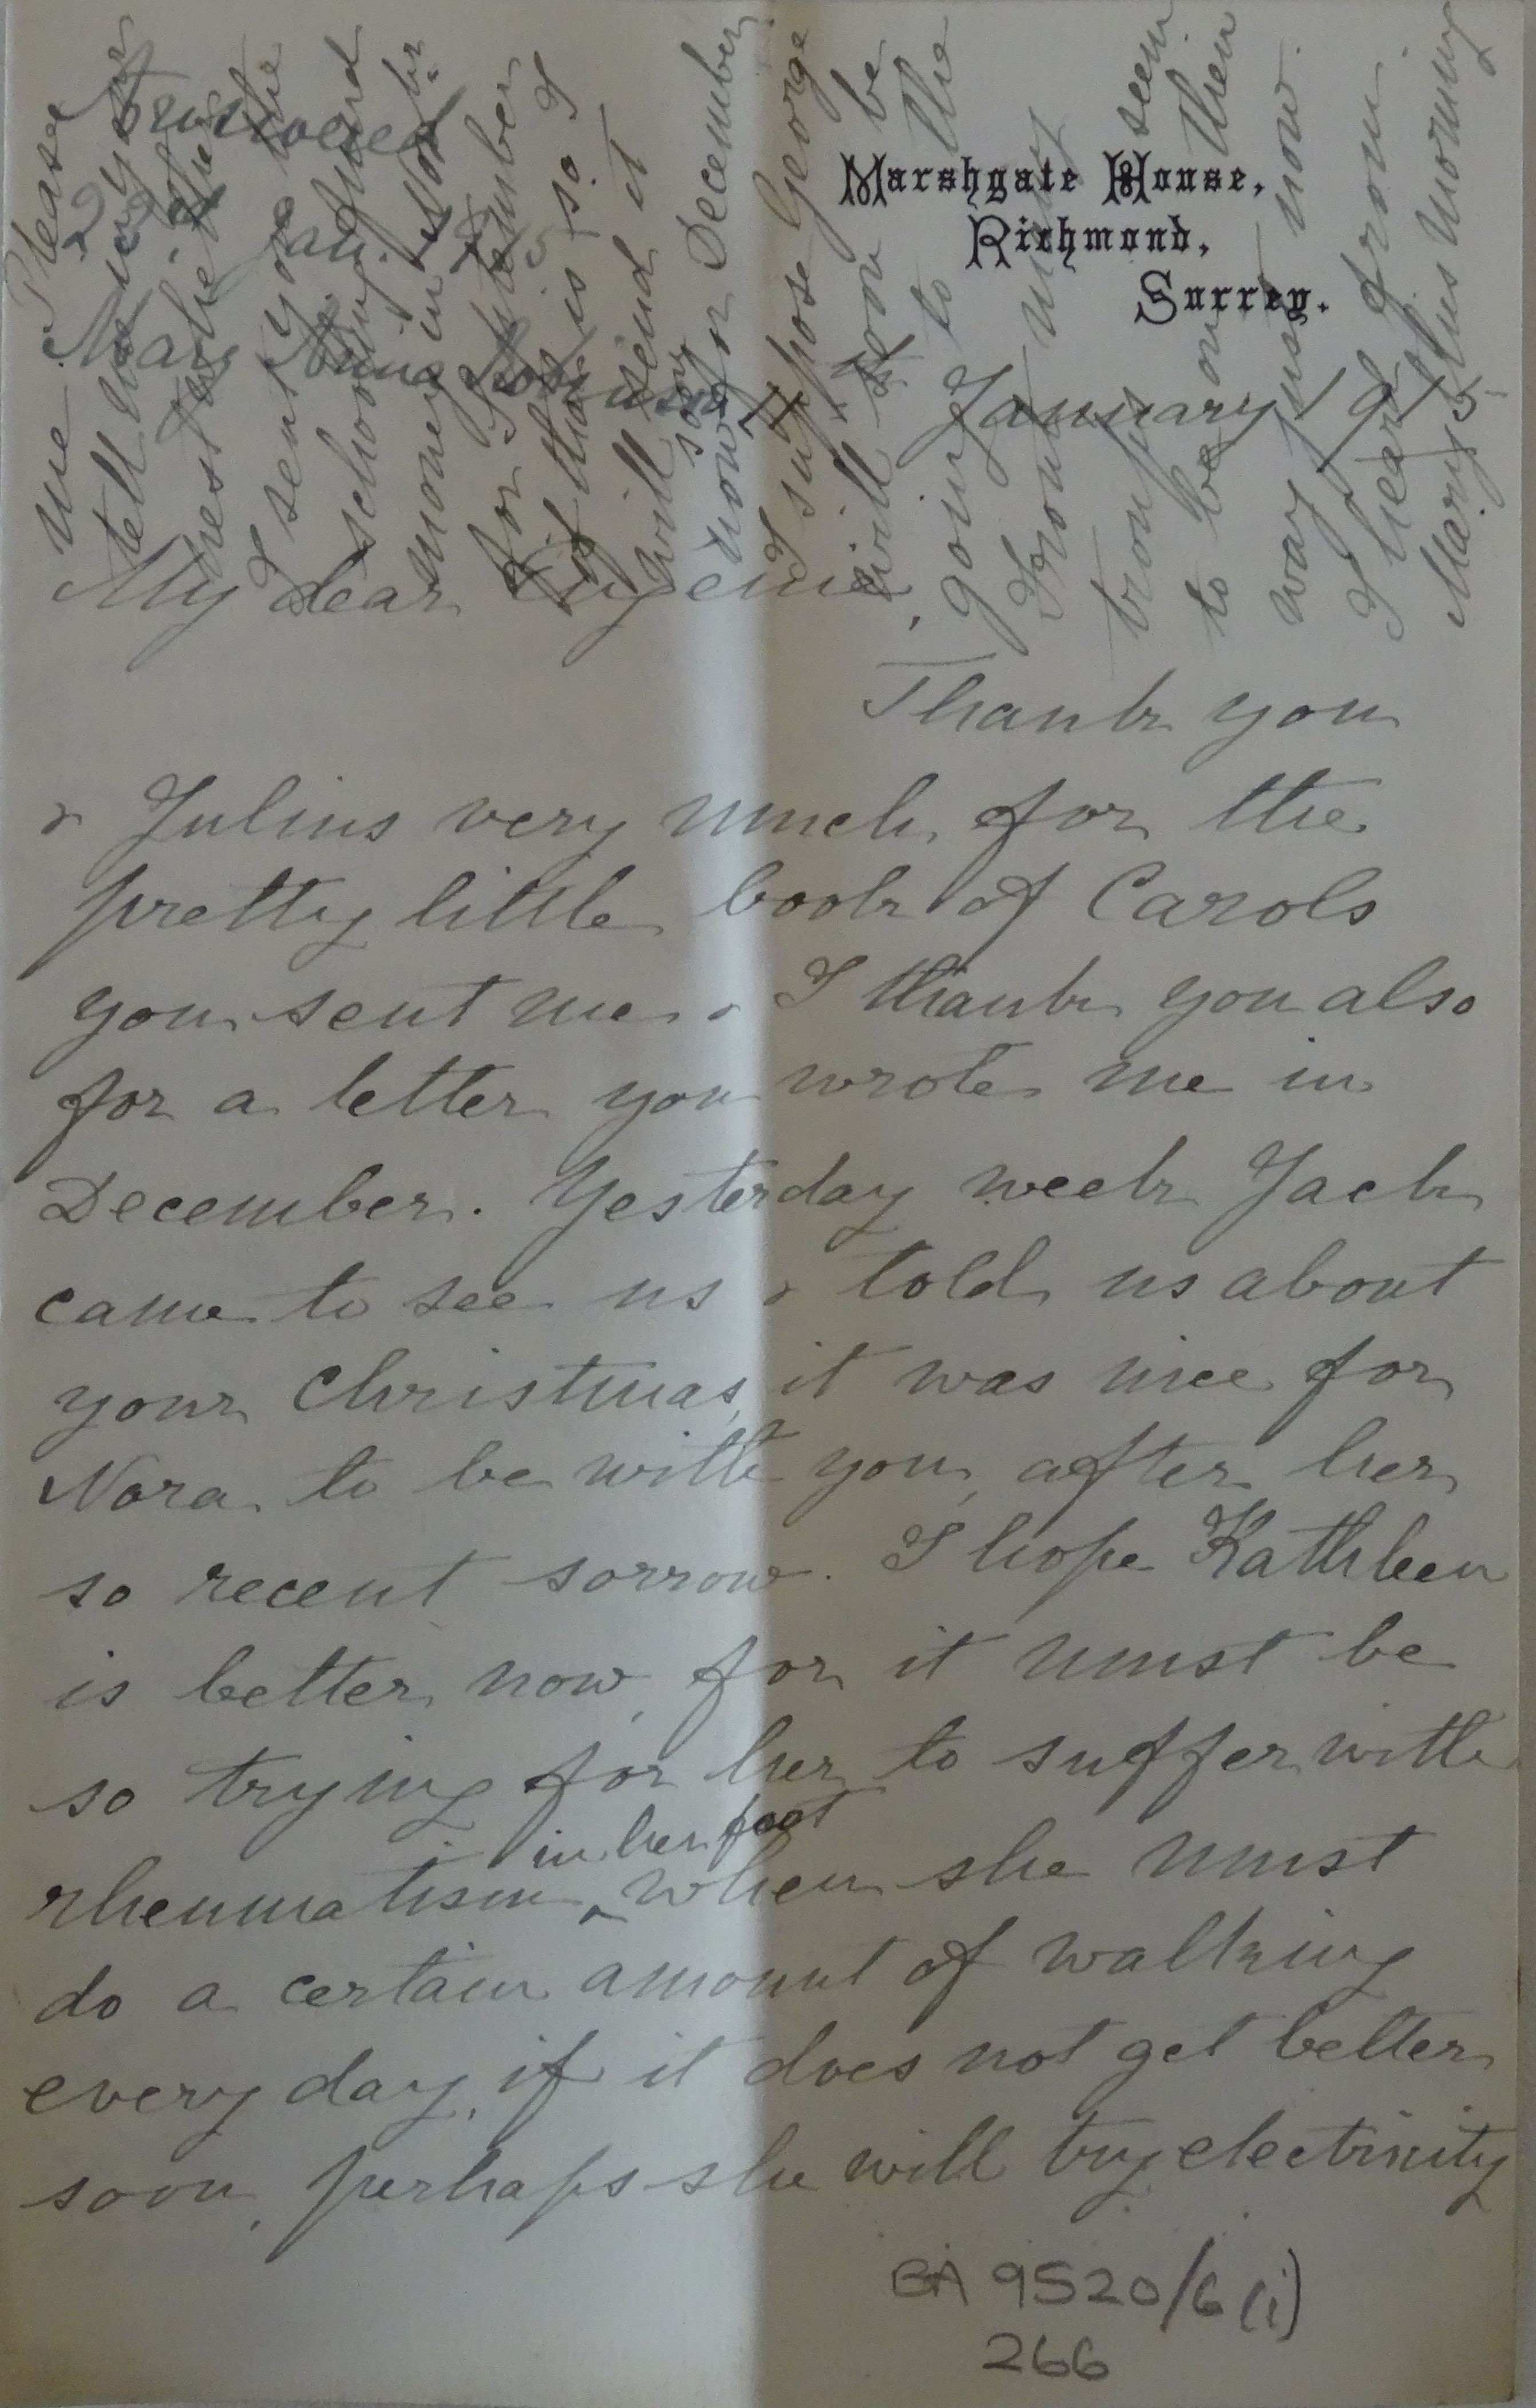 Answered
Jan. 1915
Mary Anna Robinson
Marshgate House,
Richmond,
Surrey.
7th January 1915
My dear Eugenie,
Thank you
& Julius very much for the
pretty little book of Carols
you sent me & I thank you also
for a letter you wrote me in
December. Yesterday week Jack
came to see us & told us about
your Christmas, it was nice for
Nora to be with you, after her
so recent sorrow. I hope Kathleen
is better now, for it must be
so trying for her to suffer with
in her foot
rheumatism ^ when she must
do a certain amount of walking
every day, if it does not get better
soon, perhaps she will try electricity
Please
tell me
I sent you the
school
money in Nov.
for September
if that is so I
will send it
now for December
I suppose George
will soon be
going to the
Front many
troops seem
to be on their
way just now.
I heard from
Mary this morning
BA 9520/6(i)
266